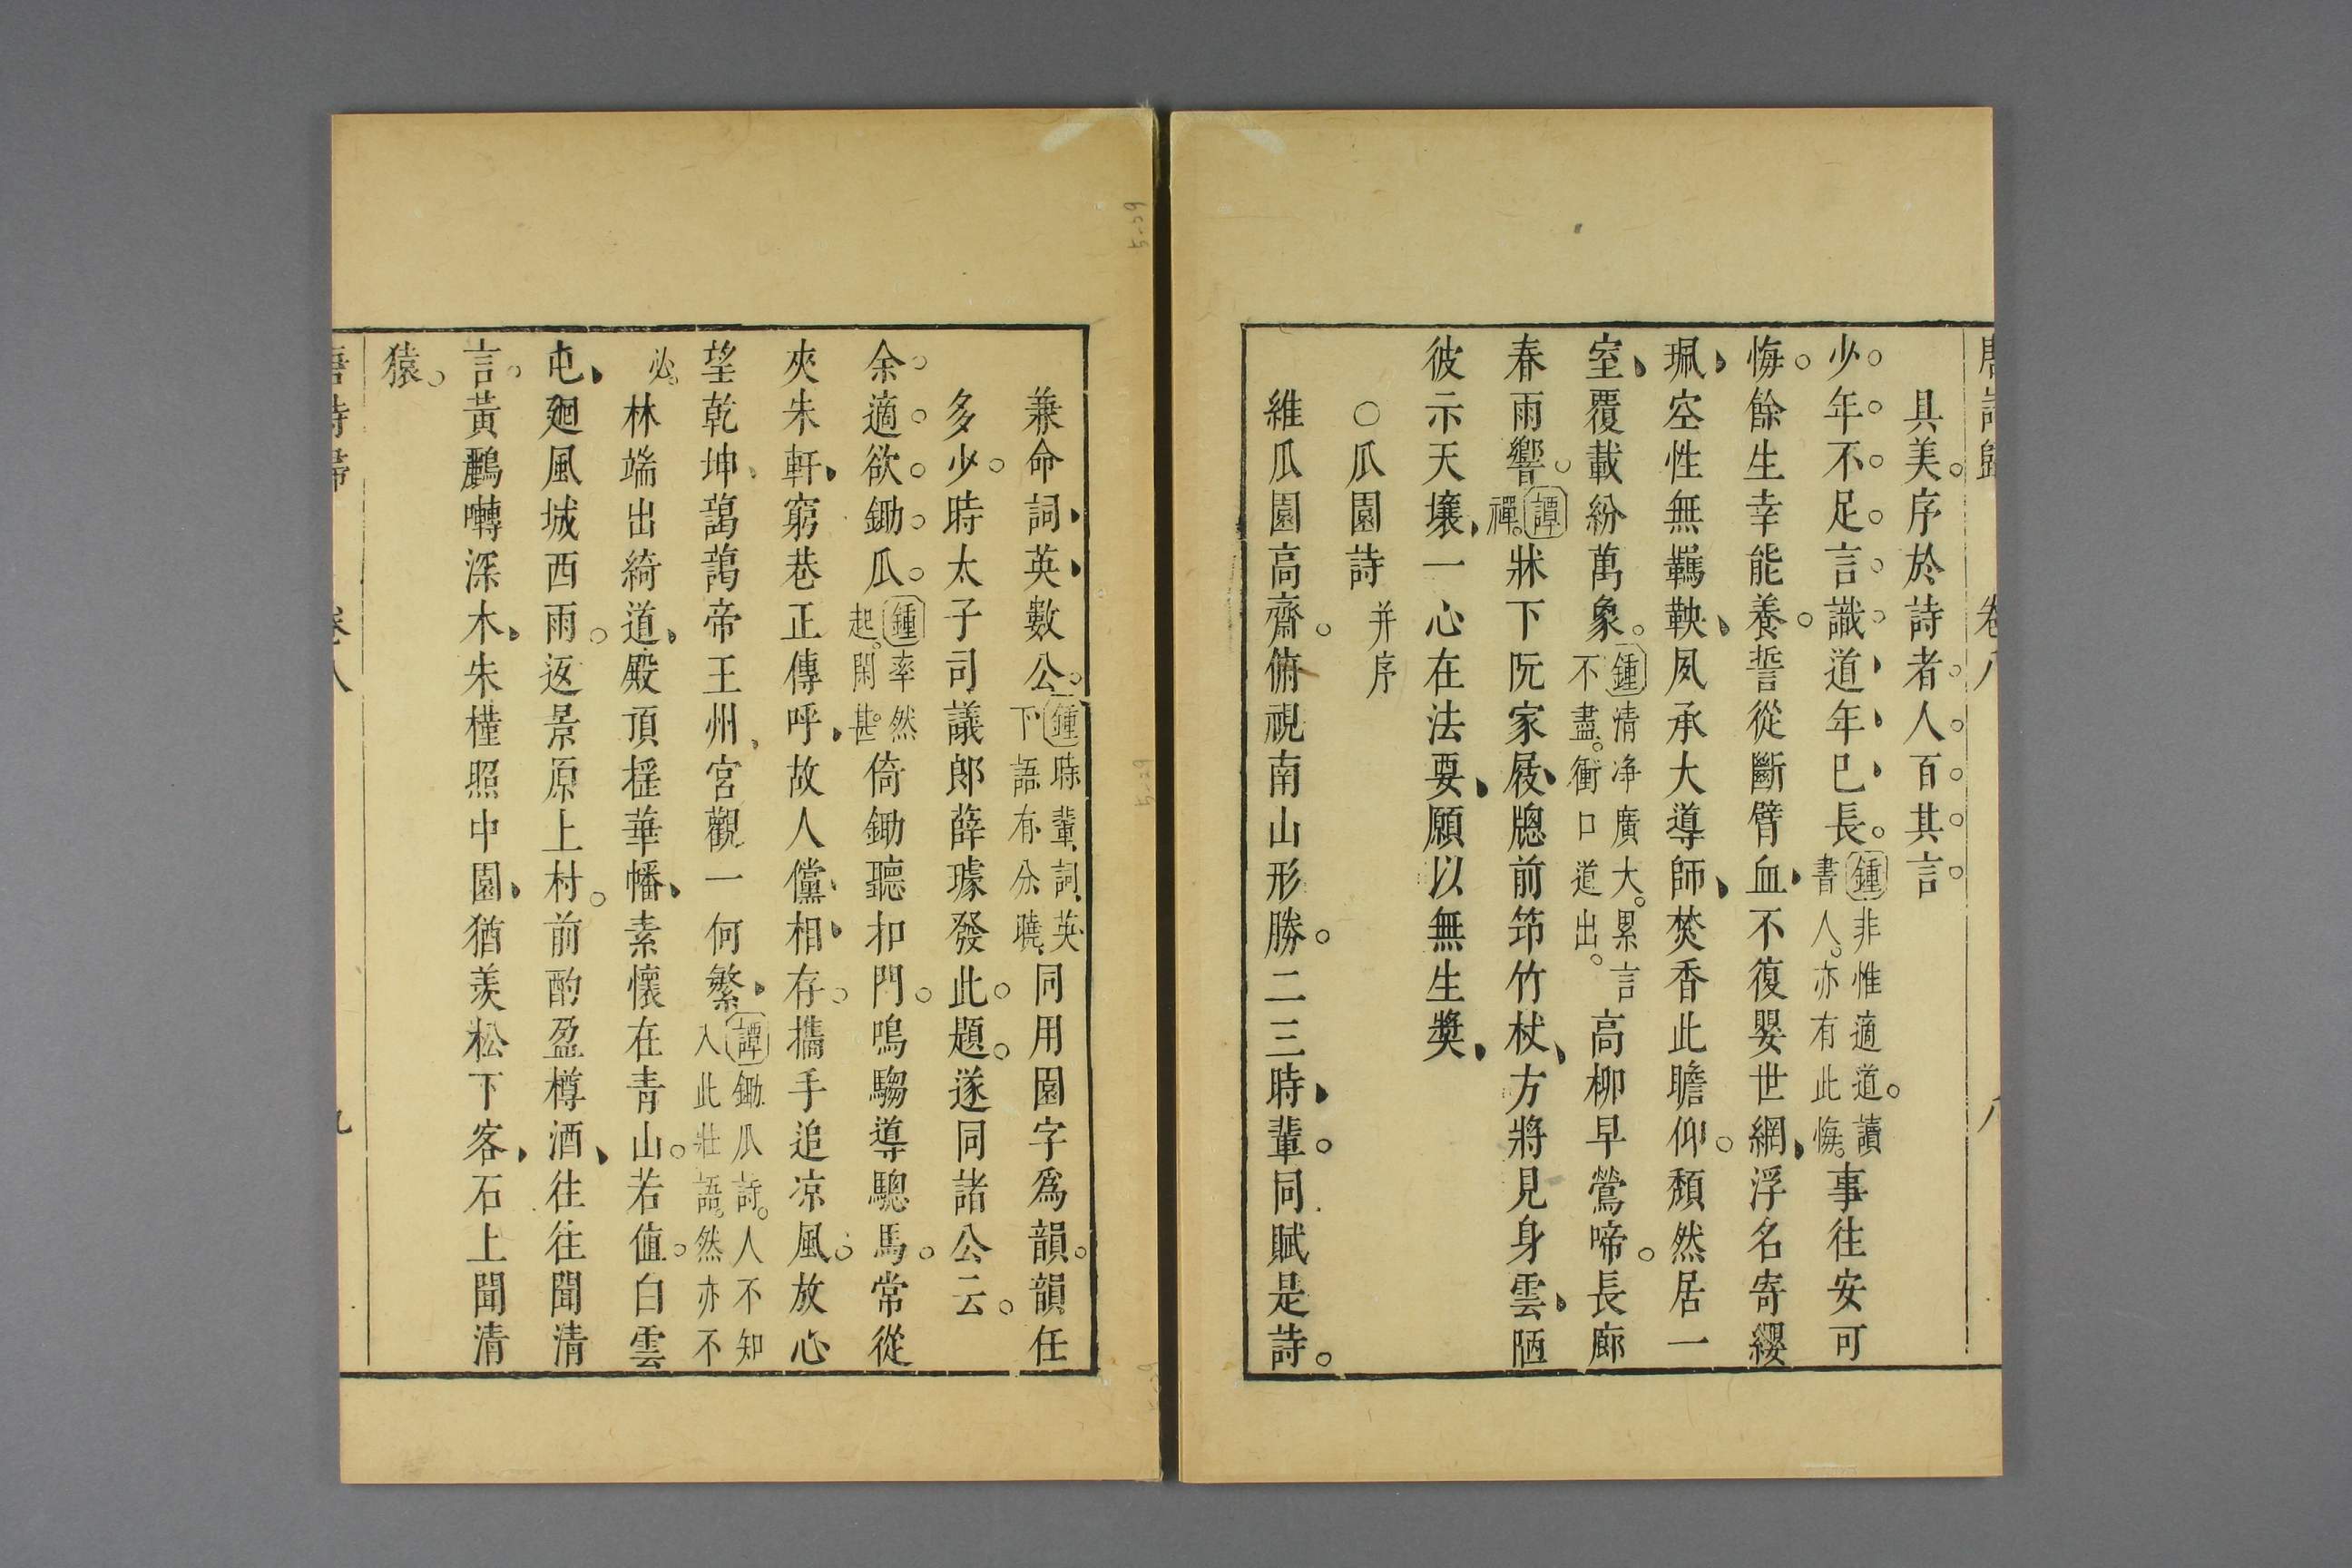 唐詩歸 卷八 八
具美。序於詩者。人百其言。
少年不足言。識道年已長。鍾非惟適道。讀書人。亦有此悔。事往安可
悔。餘生幸能養。誓從斷臂血。不復嬰世網。浮名寄纓
珮。空性無羈鞅。夙承大導師。焚香此瞻仰。頹然居一
室。覆載紛萬象。鍾清净廣大。累言不盡。衝口道出。高柳早鶯啼。長廊
春雨響。譚禪。牀下阮家屐。牕前筇竹杖。方將見身雲。陋
彼示天壤。一心在法要。願以無生奬。
○瓜園詩 并序
維瓜園高齋。俯視南山形勝。二三時輩。同賦是詩。
兼命詞英數公。鍾時輩、詞英、下語有分曉。同用園字爲韻。韻任
多少。時太子司議郎薛璩發此題。遂同諸公云。
余適欲鋤瓜。鍾率然起。閑甚。倚鋤聽扣門。鳴騶導驄馬。常從
夾朱軒。窮巷正傳呼。故人儻相存。攜手追凉風。放心
望乾坤。藹藹帝王州。宮觀一何繁。譚鋤瓜詩。人不知入此壯語。然亦不
必。林端出綺道。殿頂揺華幡。素懷在青山。若值白雲
屯。廻風城西雨。返景原上村。前酌盈樽酒。往往聞清
言。黃鸝囀深木。朱槿照中園。猶羨松下客。石上聞清
猿。
唐詩歸 卷八 九